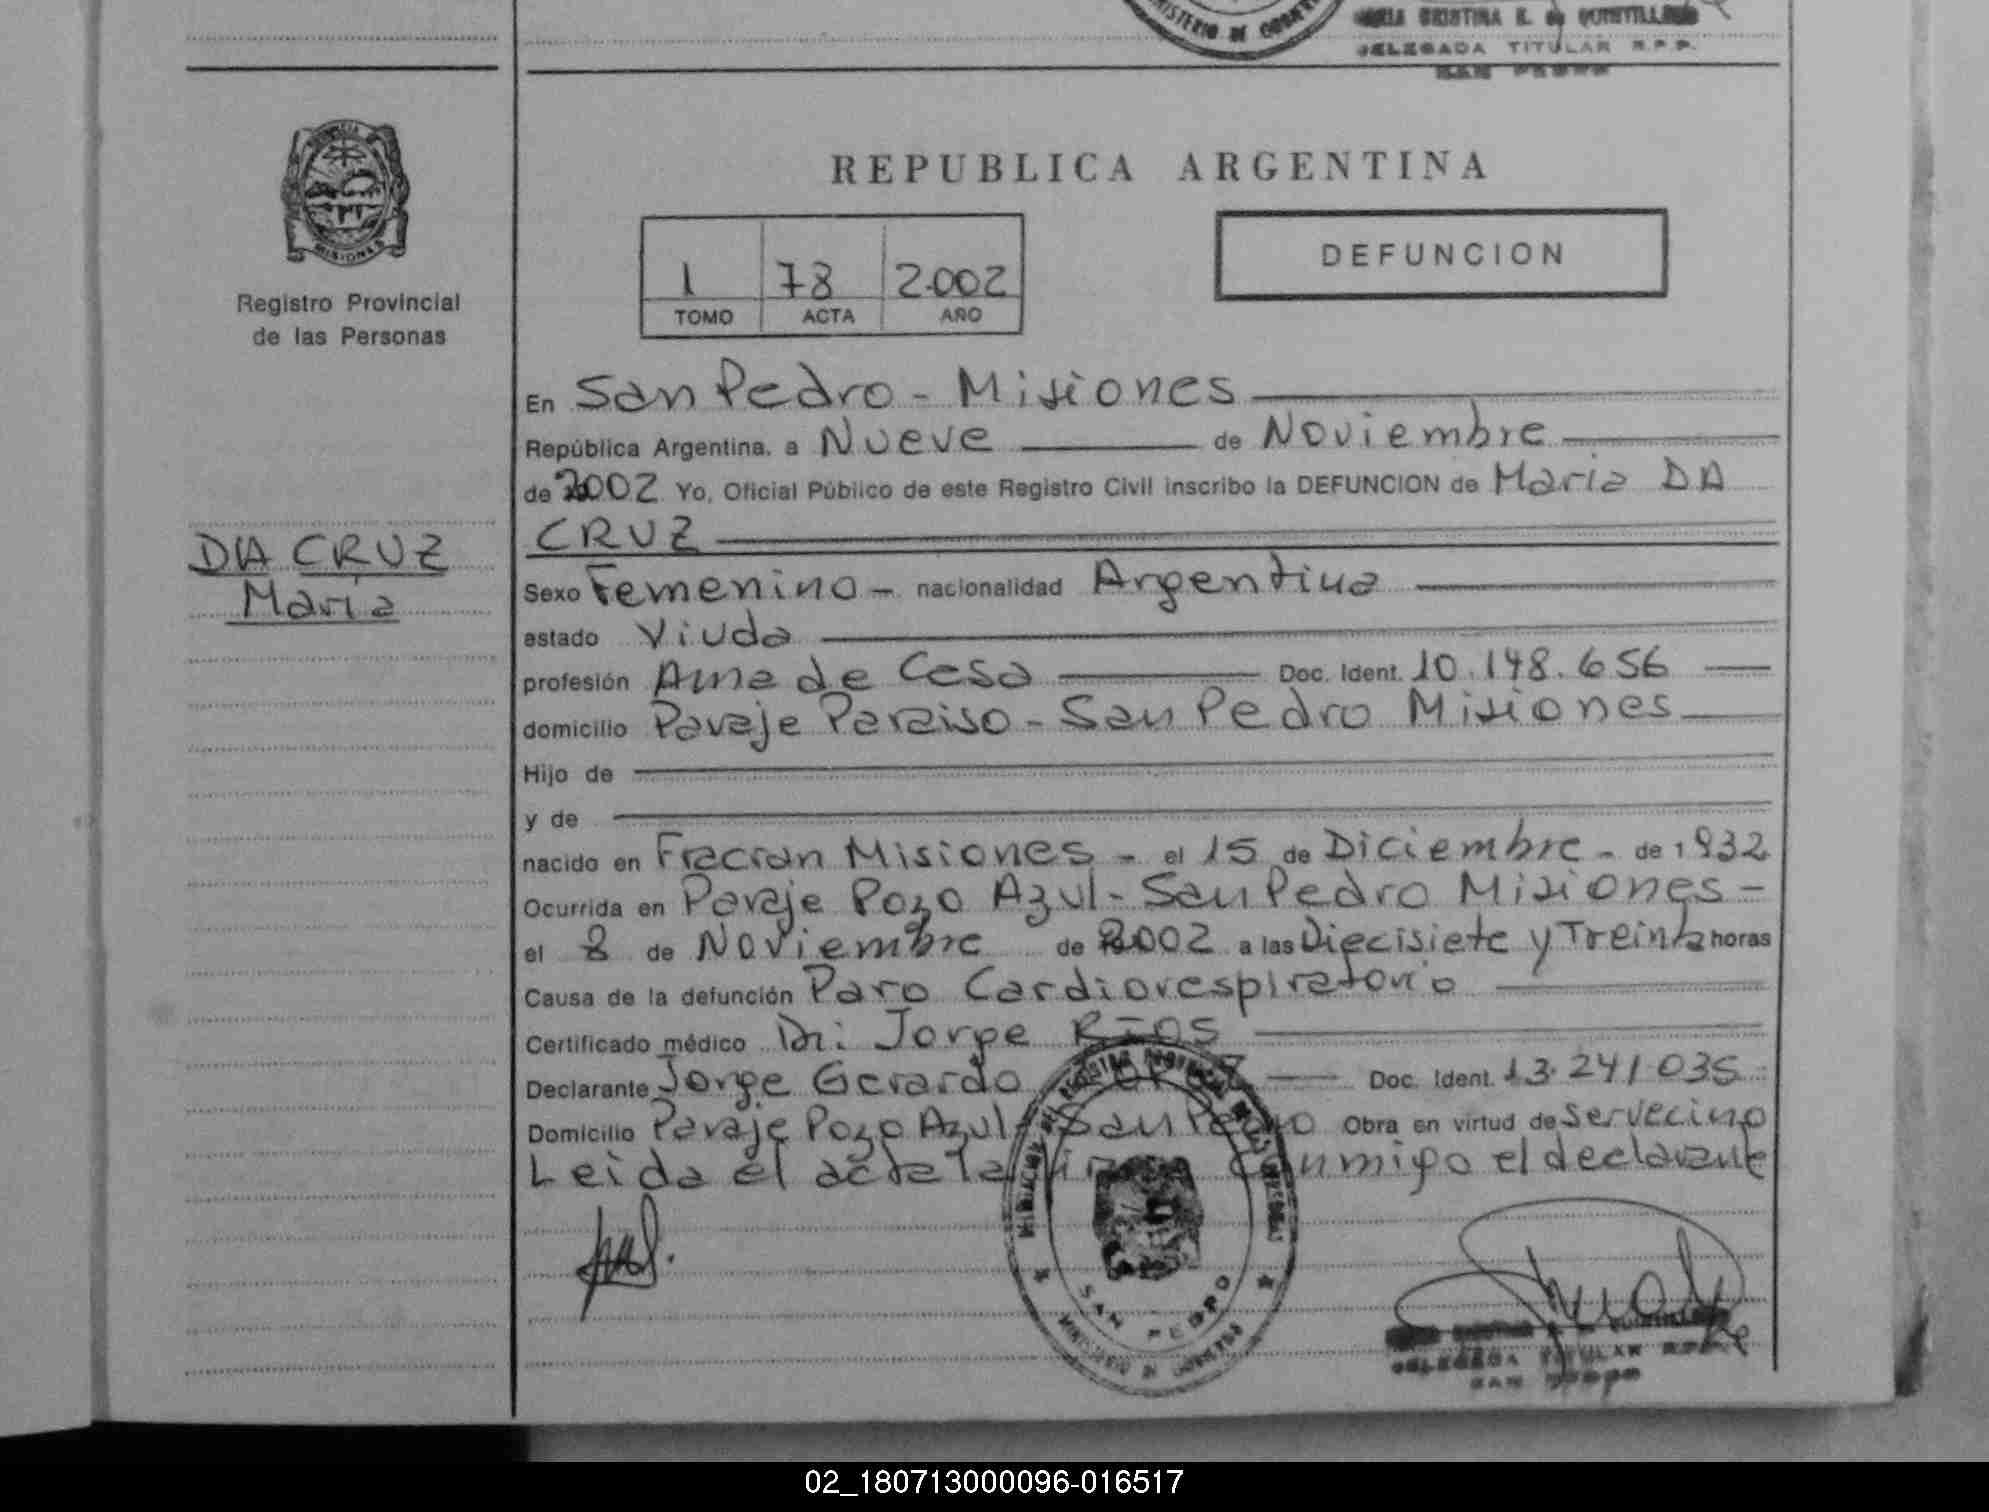 MINISTERIO DE GOBIERNO
MARIA CRISTINA E. de
DELEGADA TITULAR R.P.P.
SAN PEDRO
PROVINCIA DE
MISIONES
Registro Provincial
de las Personas
REPUBLICA ARGENTINA
1 78 2.002
TOMO ACTA AÑO
DEFUNCION
En San Pedro - Misiones
República Argentina, a Nueve de Noviembre
de 2002 Yo, Oficial Público de este Registro Civil inscribo la DEFUNCION de Maria DA
CRUZ
DA CRUZ
Maria
Sexo Femenino - nacionalidad Argentina
estado Viuda
profesión Ama de Casa Doc. Ident. 10.148.656
domicilio Paraje Paraiso - San Pedro Misiones
Hijo de
y de
nacido en Fracran Misiones - el 15 de Diciembre - de 1932
Ocurrida en Paraje Pozo Azul - San Pedro Misiones -
el 8 de Noviembre de 2002 a las Diecisiete y Treinta horas
Causa de la defunción Paro Cardiorespiratorio
Certificado médico Dr: Jorge Rios
Declarante Jorge Gerardo Doc. Ident. 13.241.035
Domicilio Paraje Pozo Azul - San Pedro Obra en virtud de ser vecino
Leida el acta la firma conmigo el declarante
SAN PEDRO
MINISTERIO DE GOBIERNO
DELEGADA TITULAR R.P.P.
SAN PEDRO
02_180713000096-016517